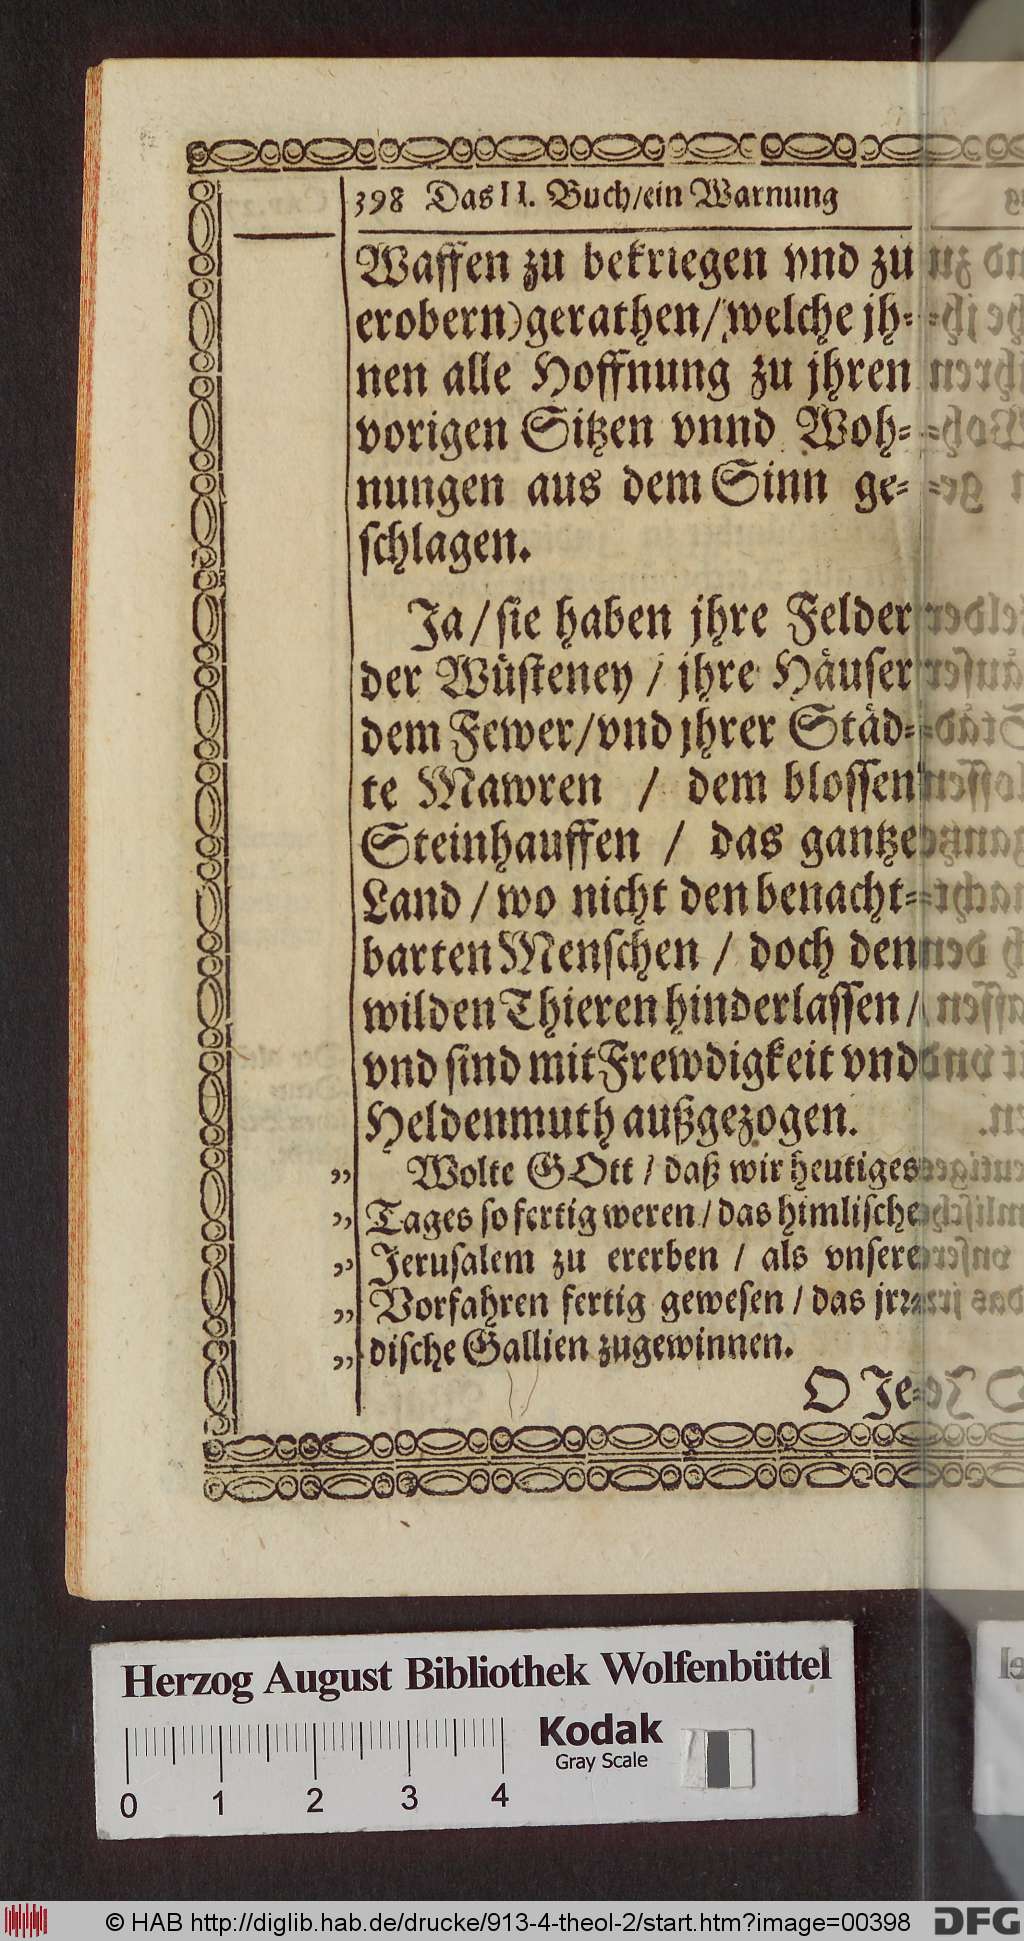 398 Das II. Buch/ein Warnung
Waffen zu bekriegen vnd zu
erobern)gerathen/welche jh-
nen alle Hoffnung zu jhren
vorigen Sitzen vnnd Woh-
nungen aus dem Sinn ge-
schlagen.
Ja/sie haben jhre Felder
der Wüsteney / jhre Häuser
dem Fewer/vnd jhrer Städ-
te Mawren / dem blossen
Steinhauffen / das gantze
Land/wo nicht den benacht-
barten Menschen / doch den
wilden Thieren hinderlassen/
vnd sind mit Frewdigkeit vnd
Heldenmuth außgezogen.
„ Wolte GOtt/daß wir heutiges
„ Tages so fertig weren/das himlische
„ Jerusalem zu ererben / als vnsere
„ Vorfahren fertig gewesen/das jrr-
„ dische Gallien zugewinnen.
O Je-
Herzog August Bibliothek Wolfenbüttel
Kodak
Gray Scale
0 1 2 3 4
© HAB http://diglib.hab.de/drucke/913-4-theol-2/start.htm?image=00398
DFG